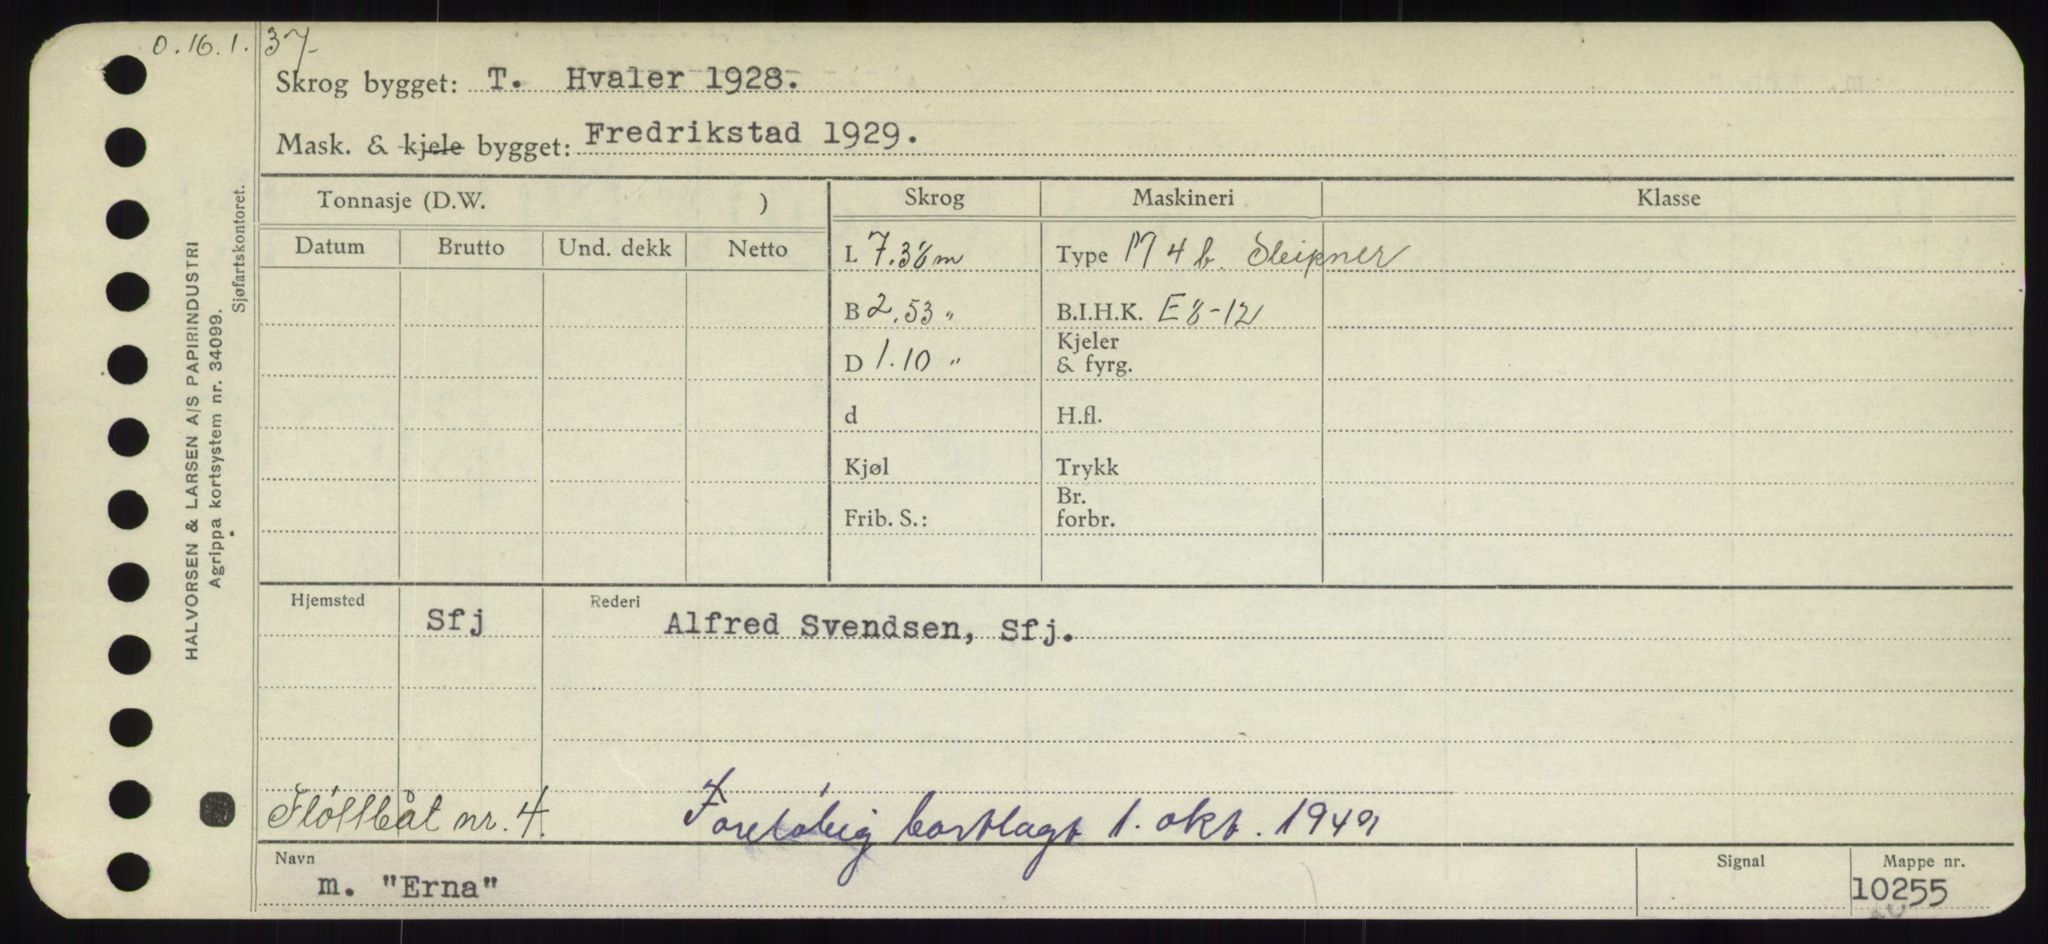 O. 16. 1. 37
Skrog bygget: T. Hvaler 1928.
Mask. & kjele bygget: Fredrikstad 1929.
HALVORSEN & LARSEN A/S PAPIRINDUSTRI
Agrippa kortsystem nr. 34099.
Sjøfartskontoret.
Tonnasje (D.W. )
Skrog Maskineri Klasse
Datum Brutto Und. dekk Netto
L 7.38 m Type M 4 b. Sleipner
B 2.53 " B.I.H.K. E 8-12
D 1.10 " Kjeler & fyrg.
d H.fl.
Kjøl Trykk
Frib. S.: Br. forbr.
Hjemsted Rederi
Sfj Alfred Svendsen, Sfj.
Fløttbåt nr. 4. Foreløbig bortlagt 1. okt. 1949
Navn Signal Mappe nr.
m. "Erna" 10255